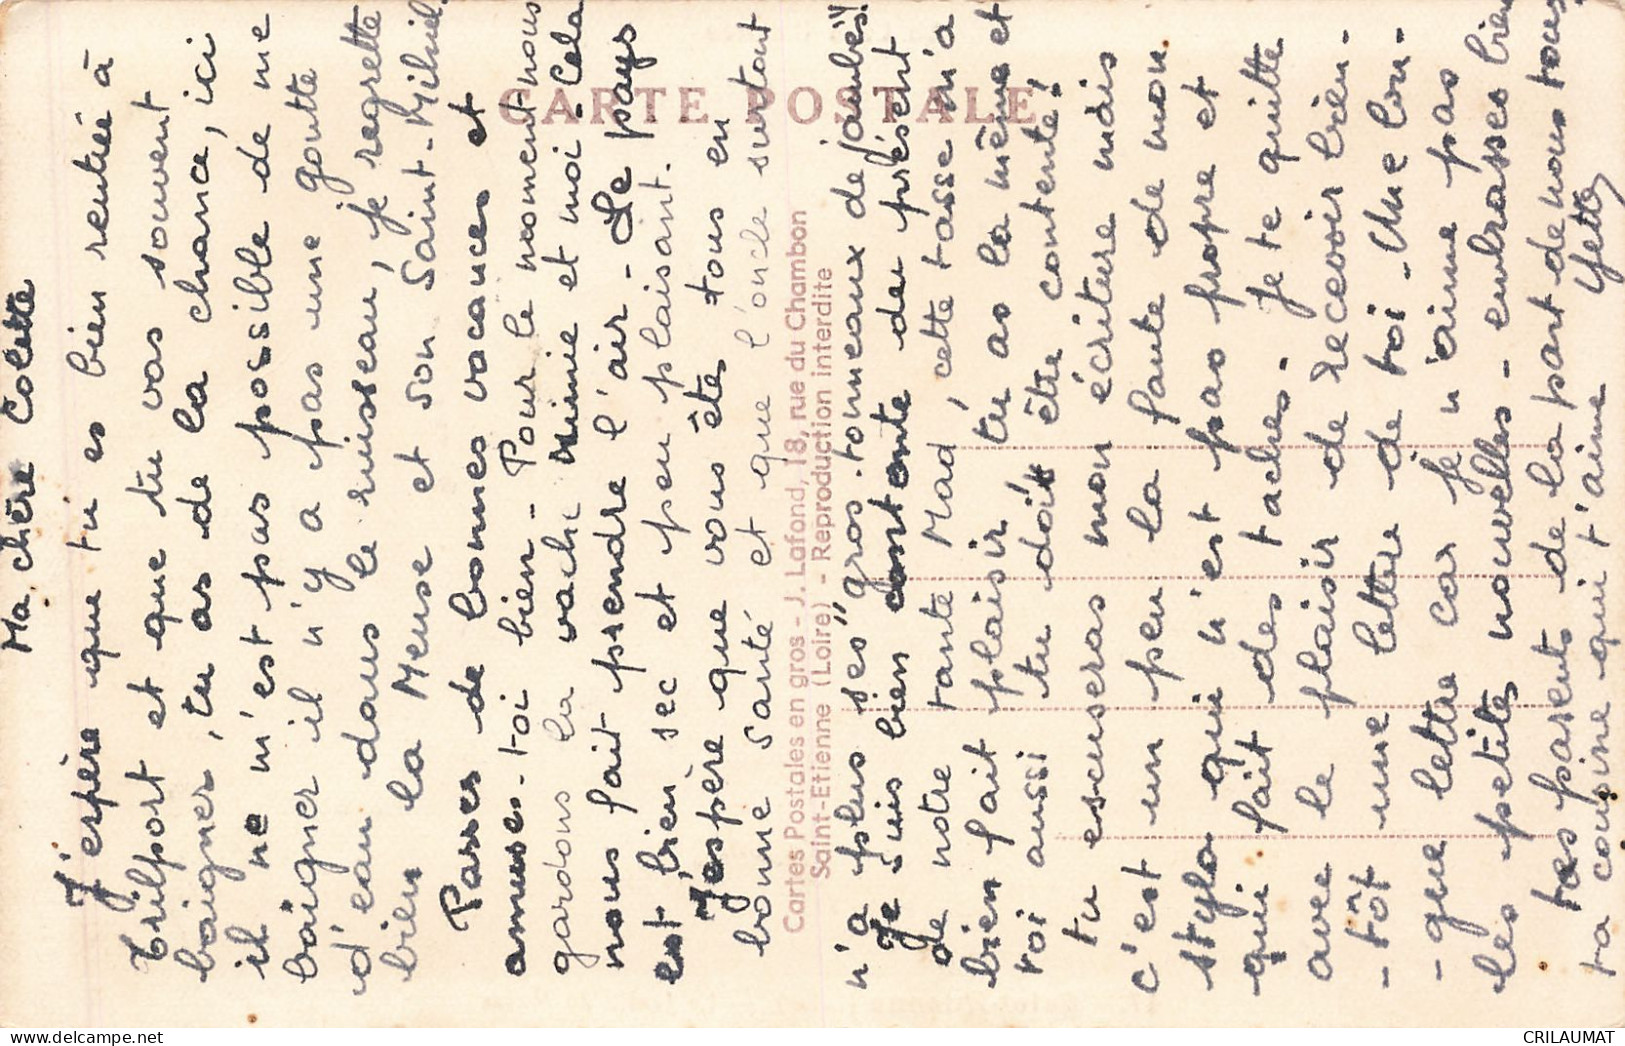 Ma chère Colette
J'espère que tu es bien rentrée à
Trilport et que tu vas souvent
baigner, tu as de la chance, ici
il ne m'est pas possible de me
baigner il n'y a pas une goutte
d'eau dans le ruisseau, je regrette
bien la Meuse et son Saint-Mihiel.
Passes de bonnes vacances et
amuses-toi bien - Pour le moment nous
gardons la vache Mimie et moi. Cela
nous fait prendre l'air - Le pays
est bien sec et peu plaisant.
J'espère que vous êtes tous en
bonne santé et que l'oncle surtout
n'a plus ses "gros tonneaux de jambes"!
Je suis bien contente du présent
de notre tante Mad, cette tasse m'a
bien fait plaisir, tu as la même et
toi aussi tu doit être contente!
tu escuseras mon écriture mais
c'est un peu la faute de mon
stylo qui n'est pas propre et
qui fait des taches. Je te quitte
avec le plaisir de recevoir bien-
-tôt une lettre de toi - Une lon-
-gue lettre car je n'aime pas
les petites nouvelles - embrasses bien
tes parents de la part de nous tous
ta cousine qui t'aime Yette
CARTE POSTALE
Cartes Postales en gros - J. Lafond, 18, rue du Chambon
Saint-Etienne (Loire) - Reproduction interdite
CRILAUMAT